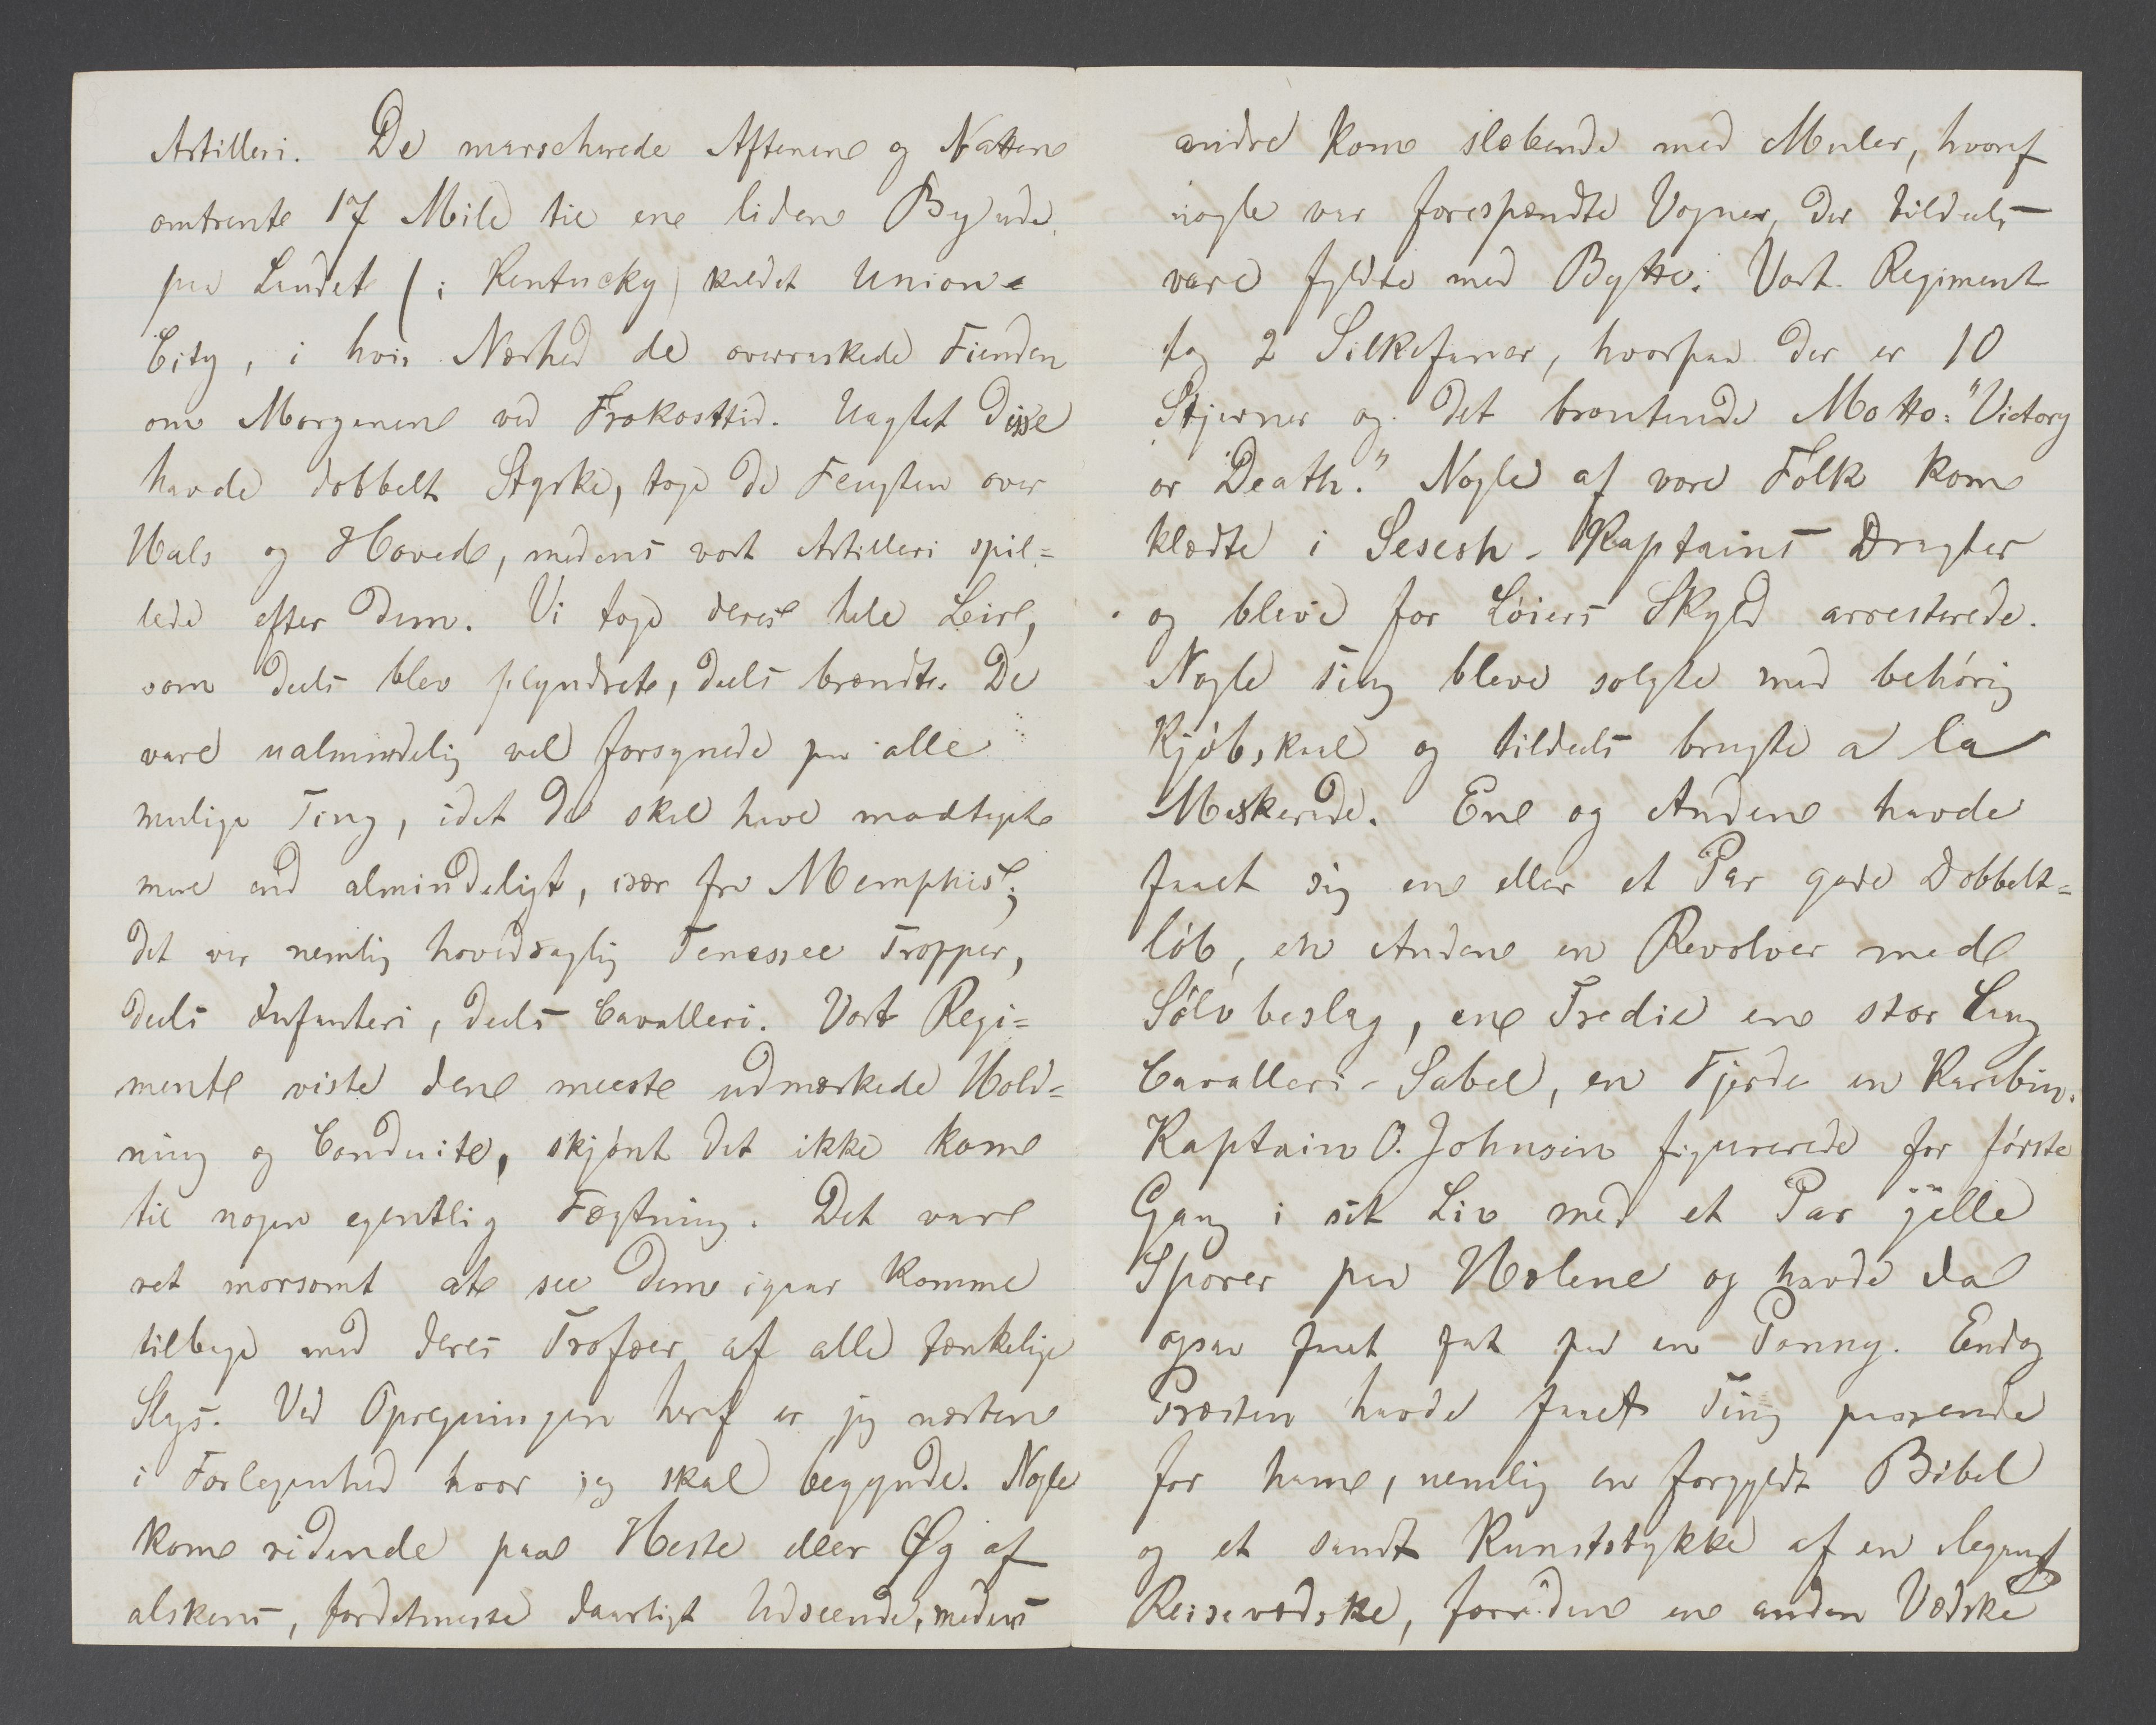 Artilleri. De marscherede Aftenen og Natten
omtrent 17 Mile til en liden By ude
paa Landet (i Kentucky) kaldet Union-
City, i hvis Nærhed de overraskede Fienden
om Morgenen ved Frokosttid. Uagtet disse
havde dobbelt Styrke, toge de Flugten over
Hals og Hoved, medens vort Artilleri spil=
lede efter dem. Vi toge deres hele Leir,
som deels blev plyndret, deels brændt. De
vare ualmindelig vel forsynede paa alle
mulige Ting, idet de skal have modtaget
mere end almindeligt, især fra Memphis;
det var nemlig hovedsaglig Tenessee Tropper,
deels Infanteri, deels Cavalleri. Vort Regi=
ment viste den meest udmærkede Hold=
ning og Conduite, skjønt det ikke kom
til nogen egentlig Fægtning. Det var
ret morsomt at see dem igaar komme
tilbage med deres Trofæer af alle tænkelige
Slags. Ved Opregningen heraf er jeg næsten
i Forlegenhed hvor jeg skal begynde. Nogle
kom ridende paa Heste eller Øg af
alskens, fordetmeste daarligt Udseende, medens
andre kom slæbende med Muler, hvoraf
nogle var forespændte Vogner, der tildeels
vare fyldte med Bytte. Vort Regiment
tog 2 Silkefaner, hvorpaa der er 10
Stjerner og det brautende Motto: "Victory
or Death." Nogle af vore Folk kom
klædte i Sesesh-Kaptains Dragter
og bleve for Løiers Skyld arresterede.
Nogle Ting bleve solgte med behørig
Kjøbskaal og tildeels brugte a la
Maskerade. En og Anden havde
faaet sig en eller et Par gode Dobbelt=
løb, en Anden en Revolver med
Sølvbeslag, en Tredie en stor lang
Cavalleri-Sabel, en Fjerde en Karabin.
Kaptain O. Johnson figurerede for første
Gang i sit Liv med et Par gjilde
Sporer paa Hælene og havde da
ogsaa faaet fat paa en Ponny. Endog
Præsten havde faaet Ting passende
for ham, nemlig en forgyldt Bibel
og et sandt Kunststykke af en elegant
Reisevædske, foruden en anden Vædske